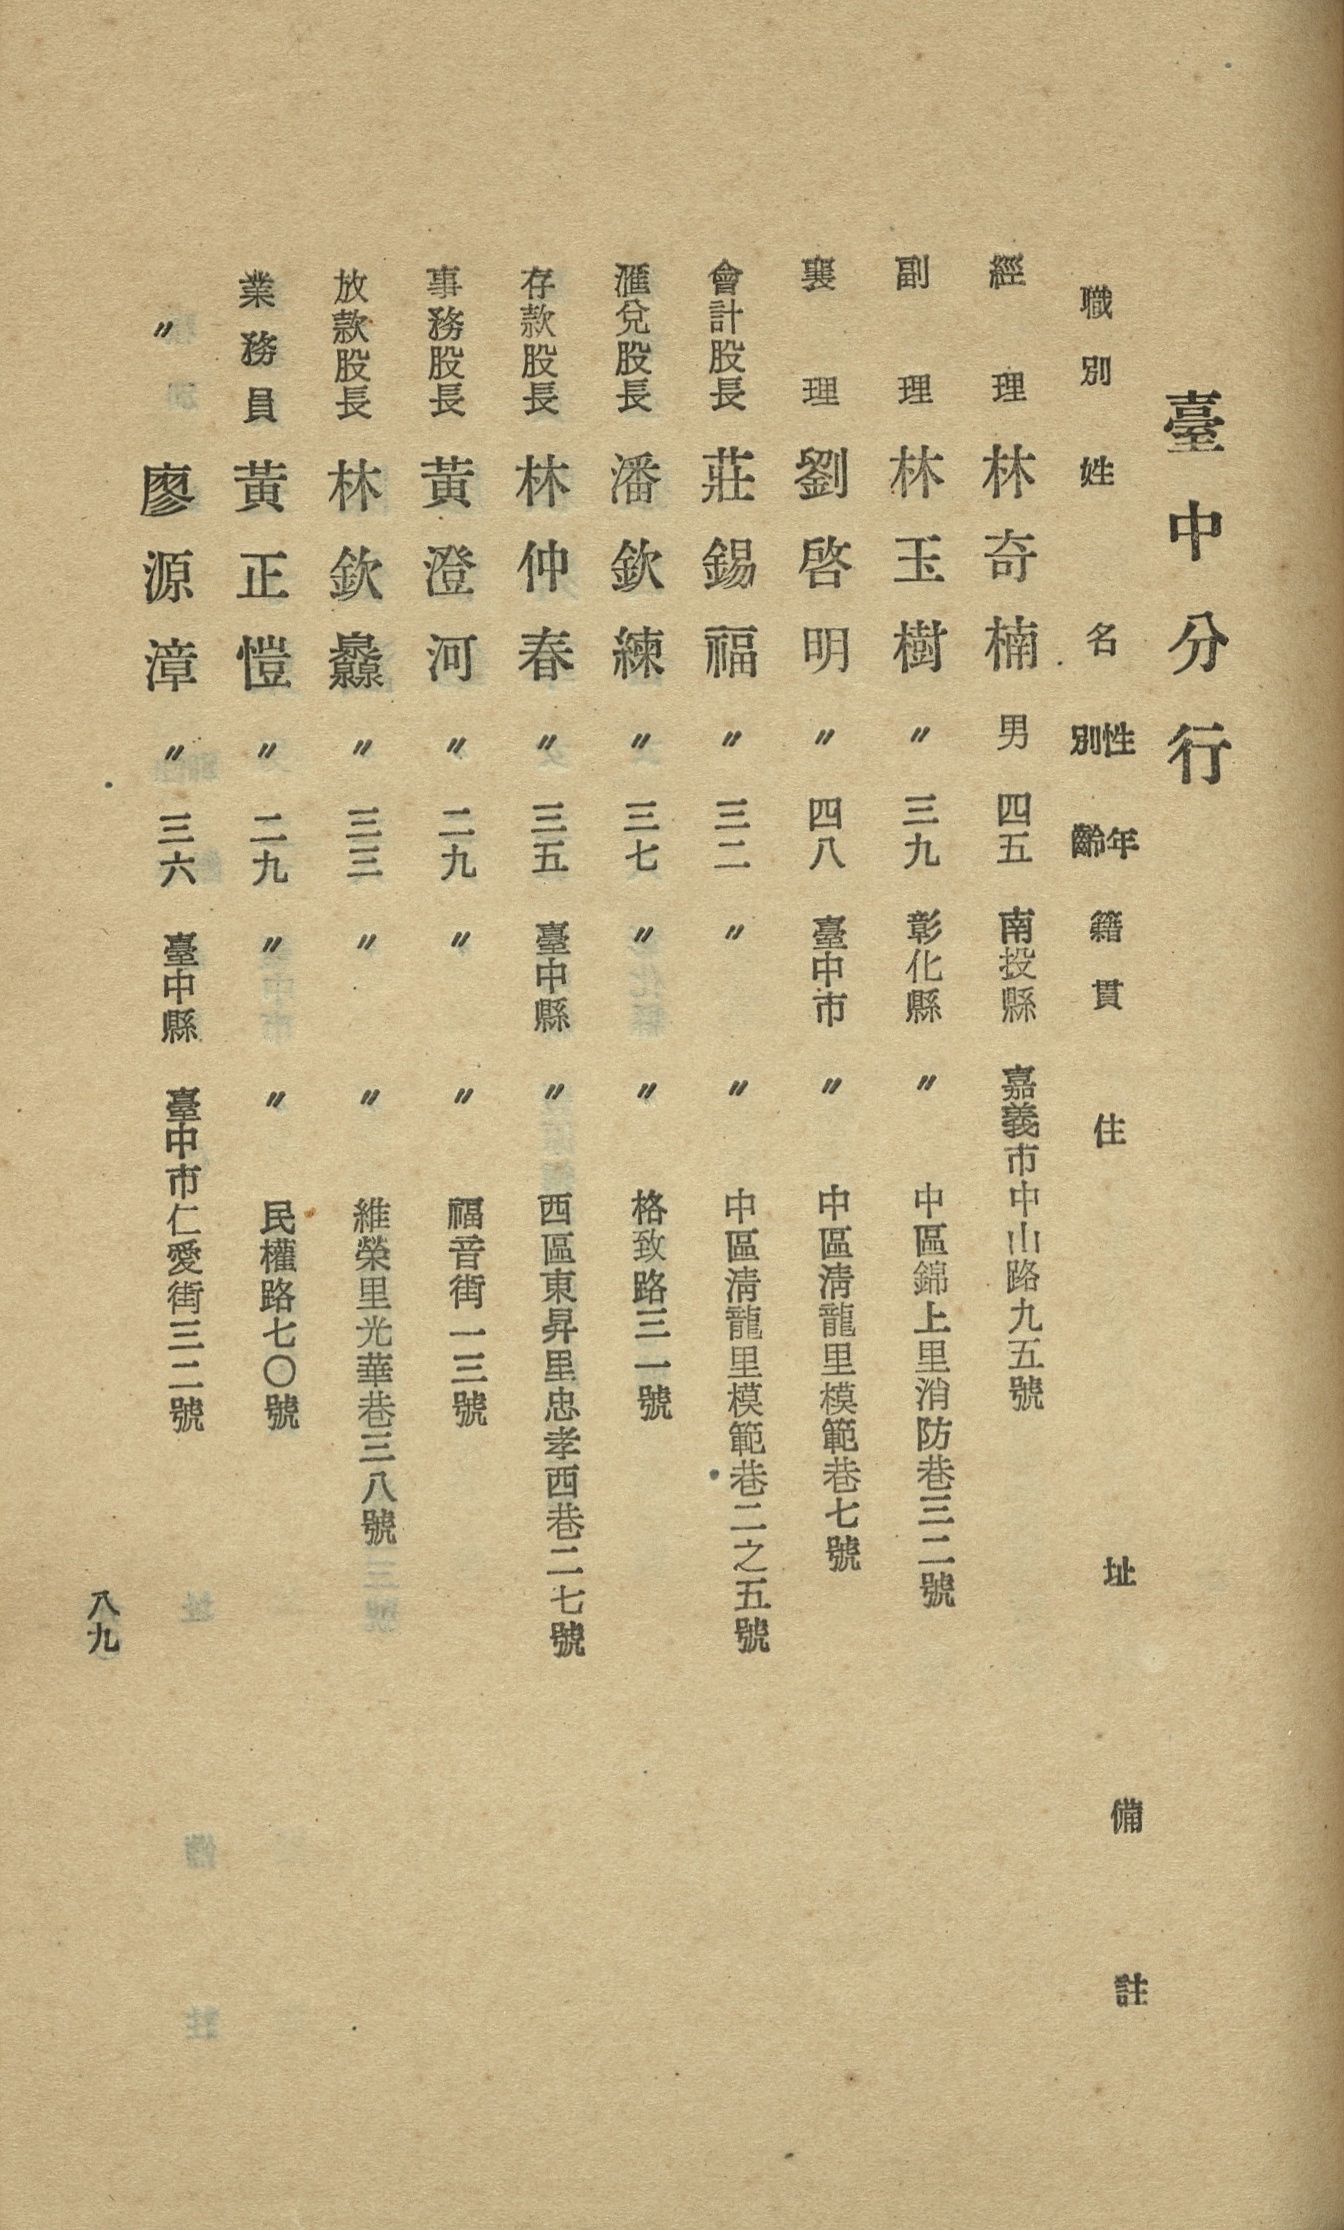 臺中分行
職別 姓名 性別 年齡 籍貫 住址 備註
經理 林奇楠 男 四五 南投縣 嘉義市中山路九五號
副理 林玉樹 〃 三九 彰化縣 〃 中區錦上里消防巷三二號
襄理 劉啓明 〃 四八 臺中市 〃 中區淸龍里模範巷七號
會計股長 莊錫福 〃 三二 〃 〃 中區淸龍里模範巷二之五號
滙兌股長 潘欽練 〃 三七 〃 〃 格致路三一號
存款股長 林仲春 〃 三五 臺中縣 〃 西區東昇里忠孝西巷二七號
事務股長 黃澄河 〃 二九 〃 〃 福音街一三號
放款股長 林欽 〃 三三 〃 〃 維榮里光華巷三八號
業務員 黃正愷 〃 二九 〃 〃 民權路七〇號
〃 廖源漳 〃 三六 臺中縣 臺中市仁愛街三二號
八九